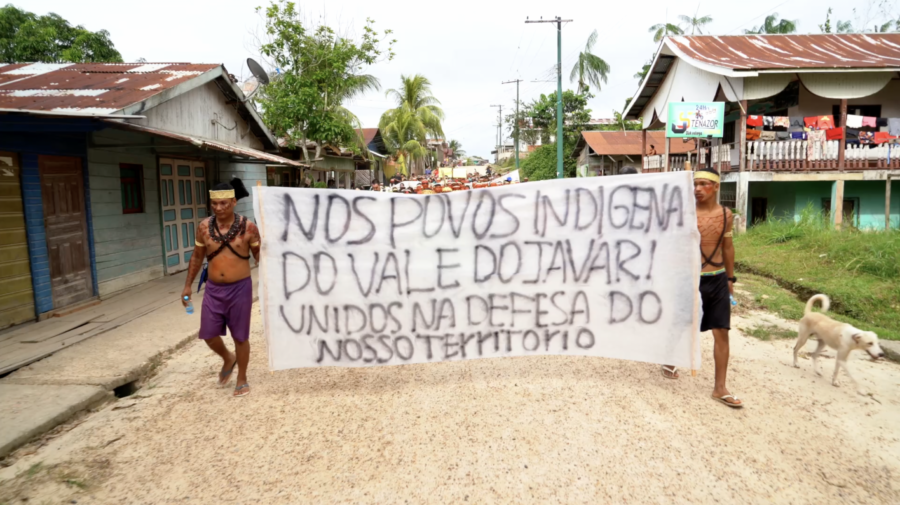 NOS POVOS INDIGENA
DO VALE DO JAVARI
UNIDOS NA DEFESA DO
NOSSO TERRITORIO
TENAZOR